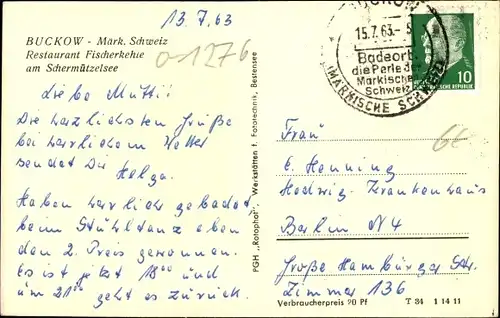 13.7.63
BUCKOW - Märk. Schweiz
Restaurant Fischerkehle
am Schermützelsee
0-1276
Liebe Mutti!
Die herzlichsten Grüße
bei herrlichem Wetter
sendet Dir Helga.
Haben herrlich gebadet
beim Stuhltanz eben
den 2. Preis gewonnen.
Es ist jetzt 18⁰⁰ und
um 21⁰⁰ geht es zurück.
PGH „Rotophot", Werkstätten f. Fototechnik, Bestensee
BUCKOW
15.7.63
Badeort
die Perle der
Märkischen
Schweiz
(MÄRKISCHE SCHWEIZ)
10
Frau
E. Henning
Hedwig-Krankenhaus
Berlin N4
Große Hamburger Str.
Zimmer 136
Verbraucherpreis 20 Pf T 34 1 14 11